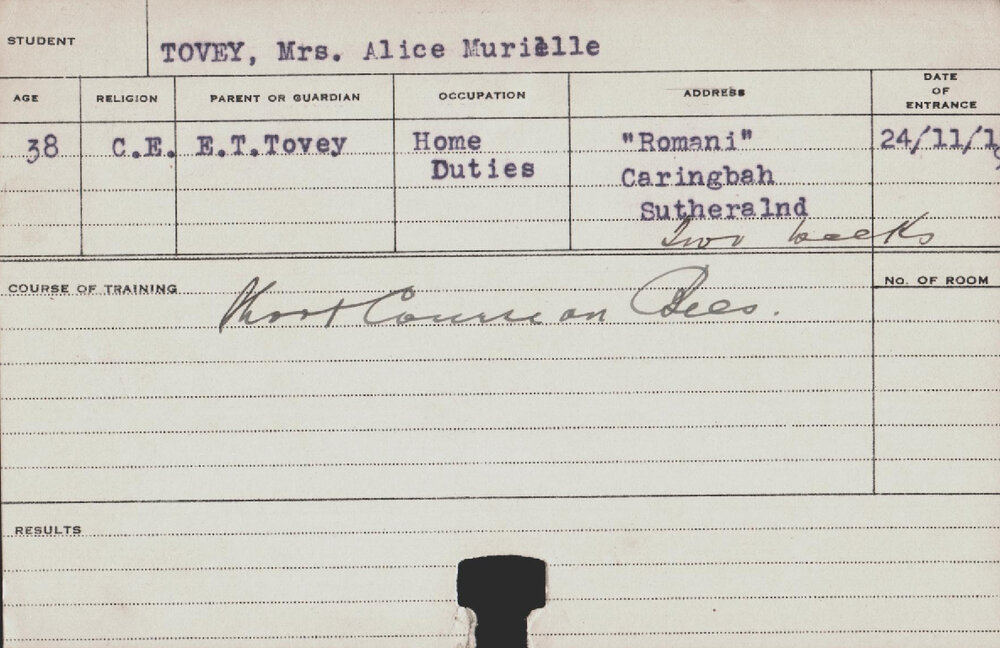 STUDENT
TOVEY, Mrs. Alice Murielle
AGE RELIGION PARENT OR GUARDIAN OCCUPATION ADDRESS DATE OF ENTRANCE
38 C.E. E.T.Tovey Home "Romani" 24/11/19
Duties Caringbah
Sutheralnd
Two weeks
COURSE OF TRAINING Short Course on Bees. No. OF ROOM
RESULTS